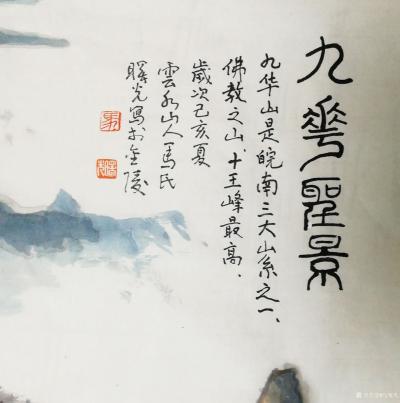 九華聖景
九华山是皖南三大山系之一、
佛教之山、十王峰最高．
歲次己亥夏
雲水山人馬氏
曙光寫於金陵